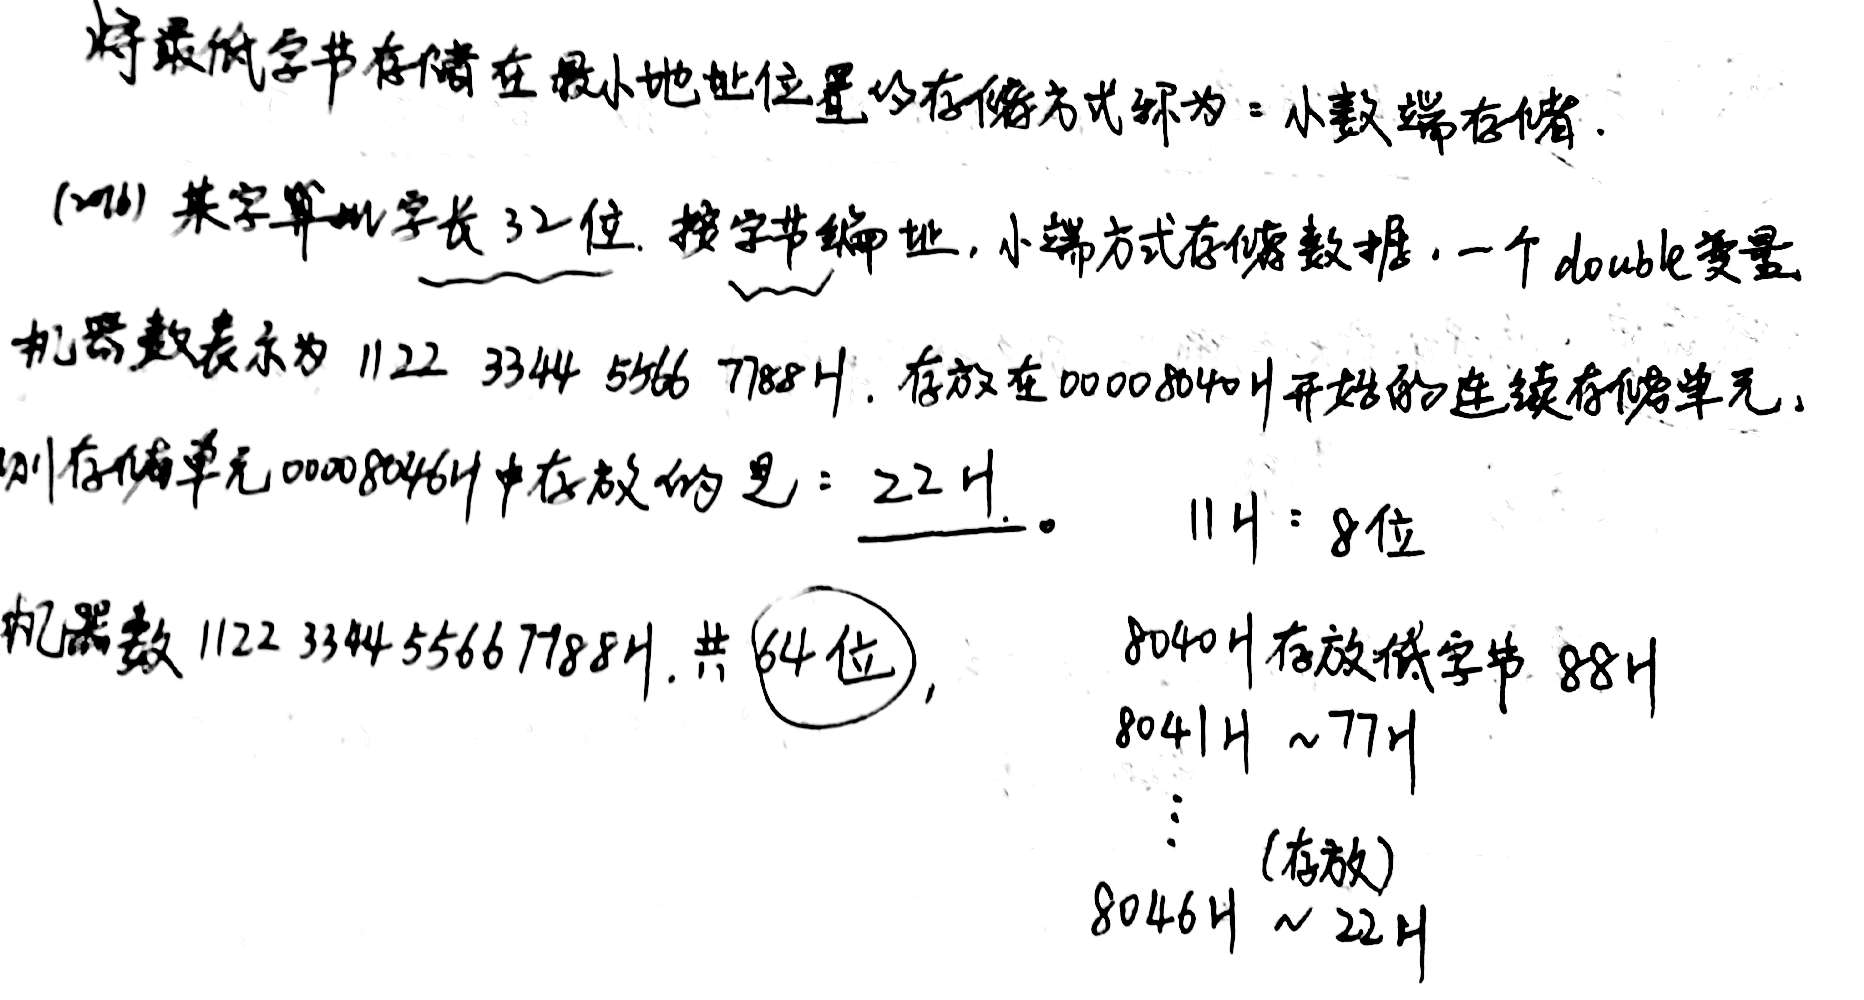 将最低字节存储在最小地址位置的存储方式称为：小数端存储.
(2016) 某字算机字长32位. 按字节编址, 小端方式存储数据. 一个double变量
机器数表示为 1122 3344 5566 7788H. 存放在00008040H开始的连续存储单元,
则存储单元00008046H中存放的是：22H.。
11H：8位
机器数 1122 3344 5566 7788H. 共64位,
8040H存放低字节 88H
8041H ~77H
⋮
(存放)
8046H ~ 22H